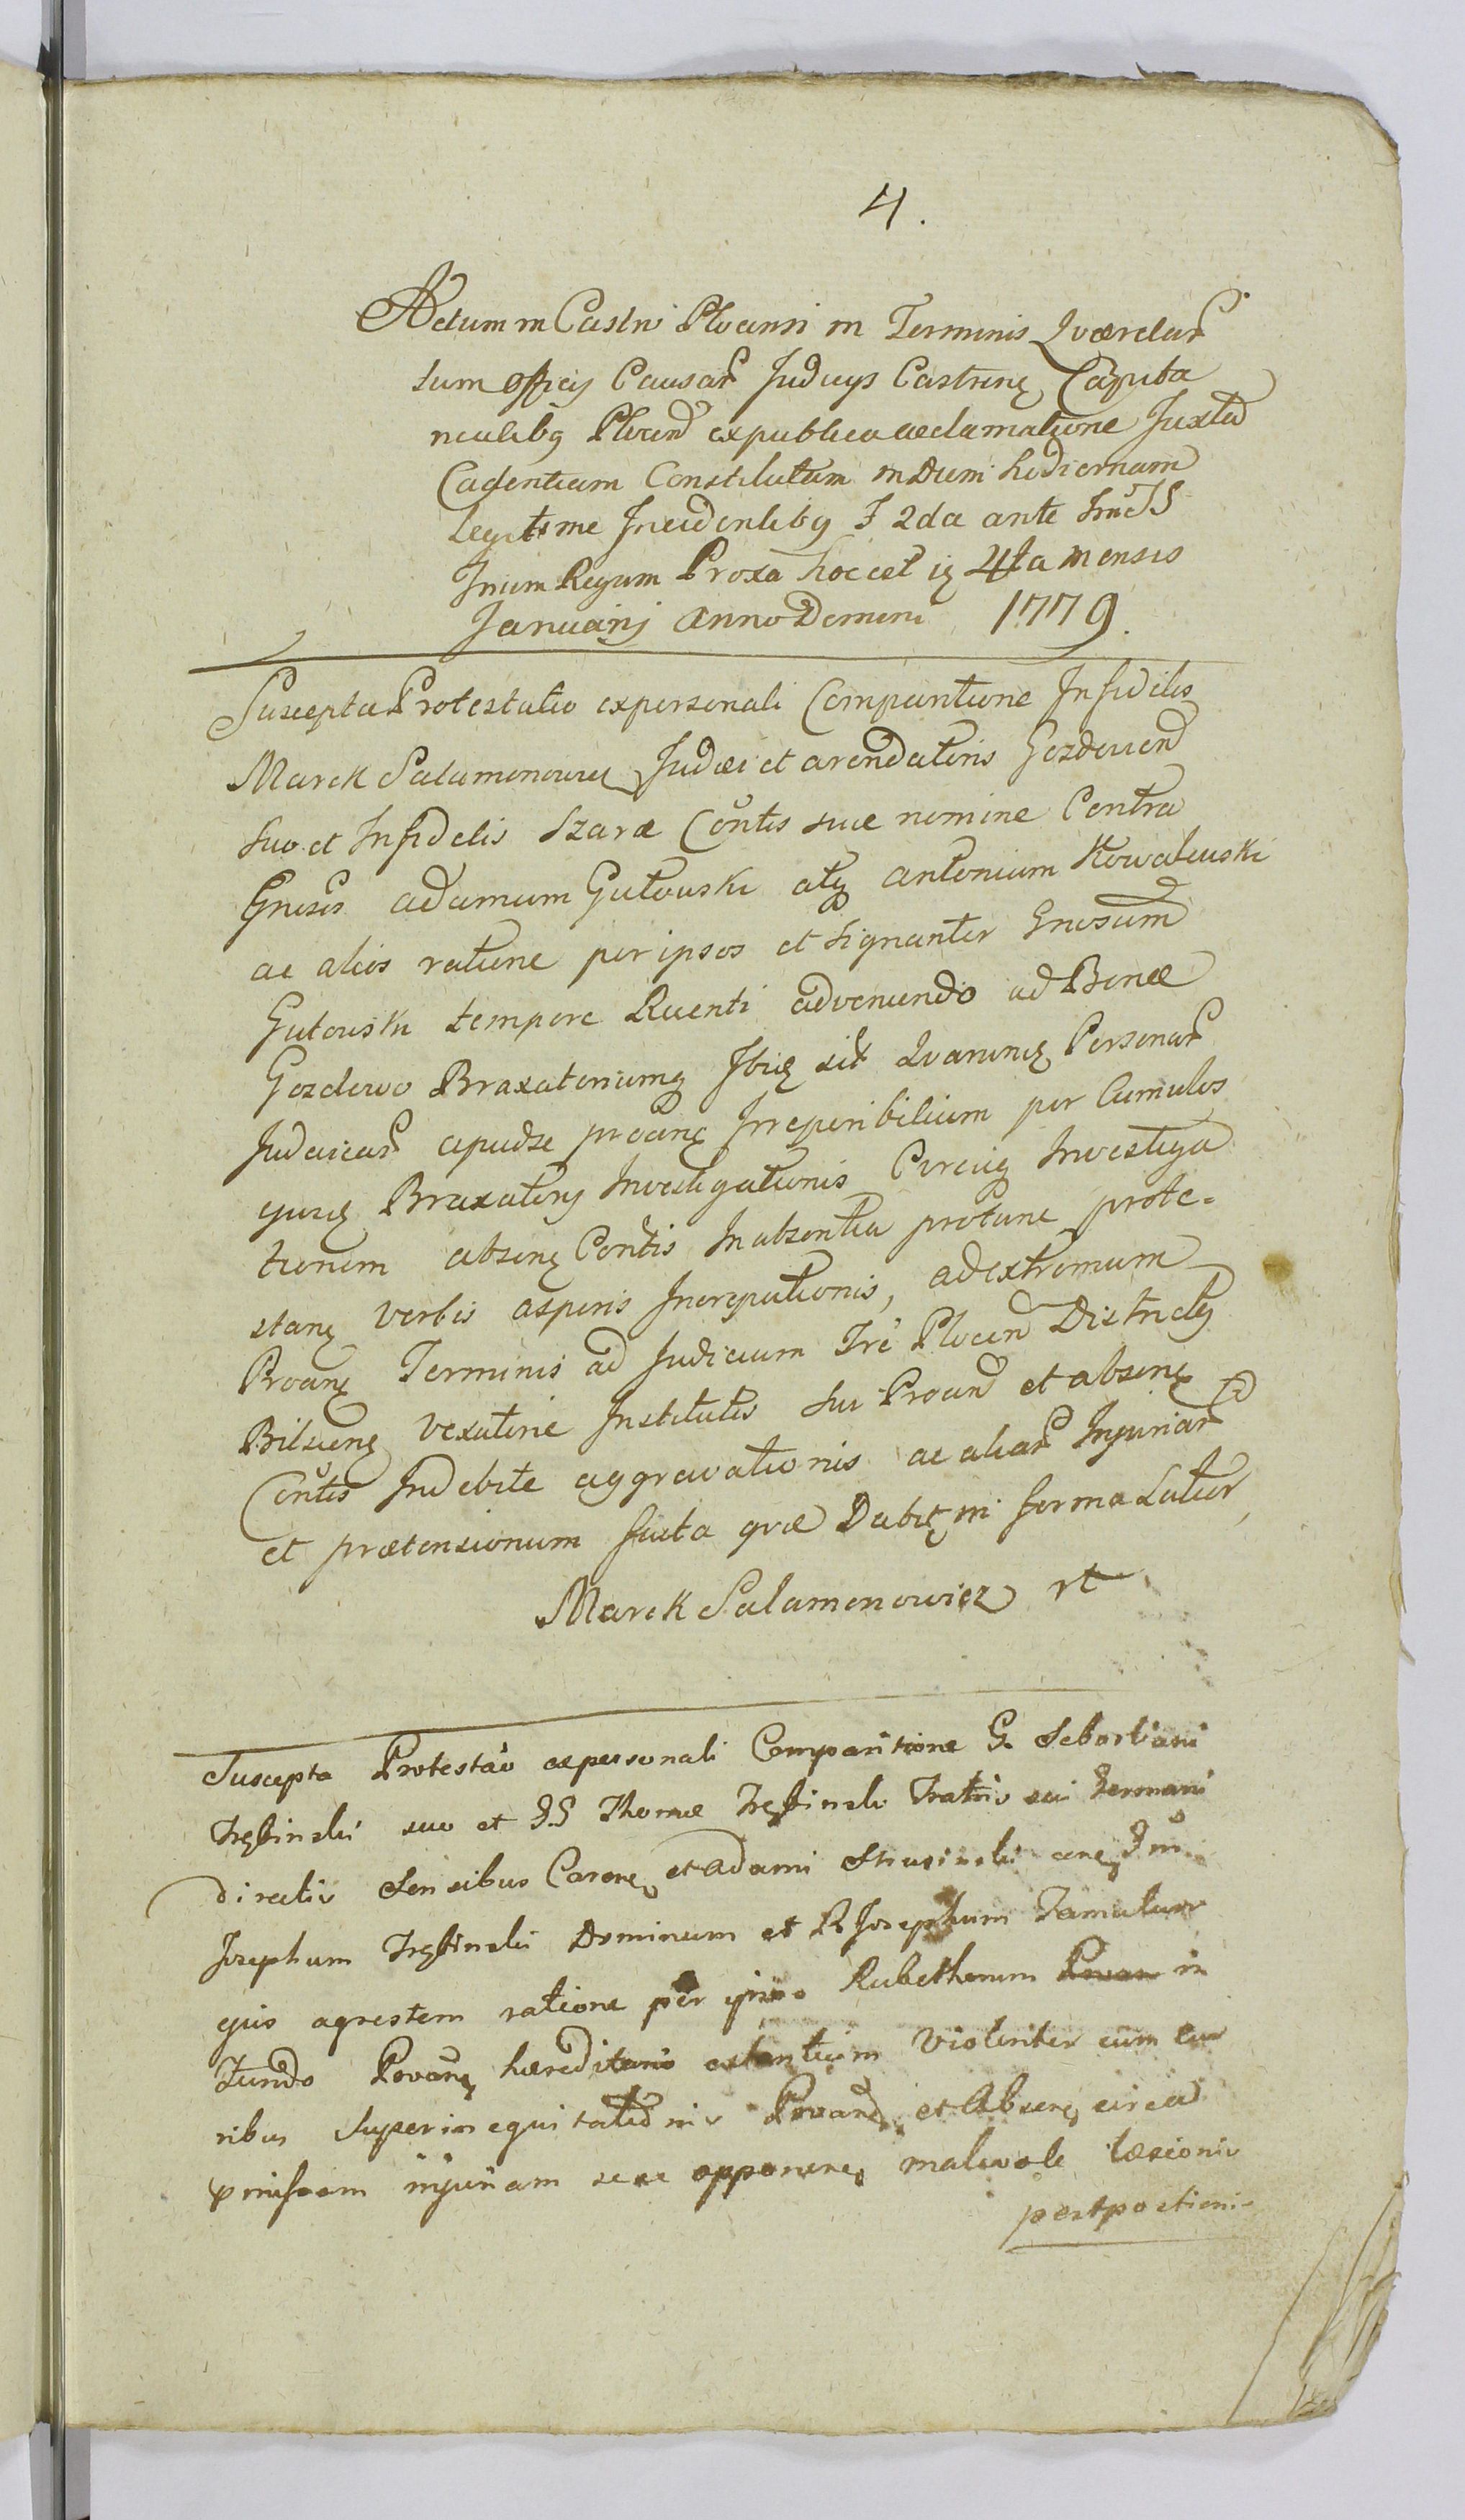 4.
Actum in Castro Plocensi in Terminis Qvaerelar
lum officij Causar Judicijs Castrens Capita
nealibq Plocen ex publica acclamatione Juxta
Cadentiam Constitutam in Diem hodiernam
legitime Incidentibq F 2da ante
Trium Regum Proxa hoc est ie 4ta mensis
Januarij Anno Domini 1779.
Suscepta Protestatio ex personali Comparitione Infidelis
Marek Salamonowicz Judaei et arendatoris Gozdovien
suo et Infidelis Szarae Contis suae nomine Contra
Gnosos adamum Gutowski atq antonium Kowalewski
ac alios ratione per ipsos et signanter Gnosum
Gutowski tempore Recenti adveniendo ad Bona
Gozdowo Braxatoriumq Ibiq sit Qvarumq Personar
Judaicar apud se proane Irreperibilium per Cumulos
ejusq Braxatorij Investigationis Circiq Investiga
tionem absenq Contis In absentia protune prote-
stanq verbis asperis Increpationis, ad extremum
Proanq Terminis ad Judicium Tre Plocen Districtq
Bilscenq vexatorie Institutis sui Proan et absenq
Contis Indebite aggravationis ac aliar Injuriar
et praetensionum Juxta qvae Dabit in forma Latior,
Marek Salamonowicz rt
Suscepta Protestao ex personali Comparitione G. Sebastiani
Trębinski suo et G.G Thomae Trębinski Fratris sui Germani
directis sensibus Caren et Adami
Josephum Trębinski Dominum et R Josephum Famulum
ejus agrestem ratione per ipsos Rubethorum in
Fundo Proanq haereditario extantium violenter cum
ribus Superinequitationis Proanq et Absenq circa
pmissam injuriam sese opponenq malevole laesionis
postpositioni-